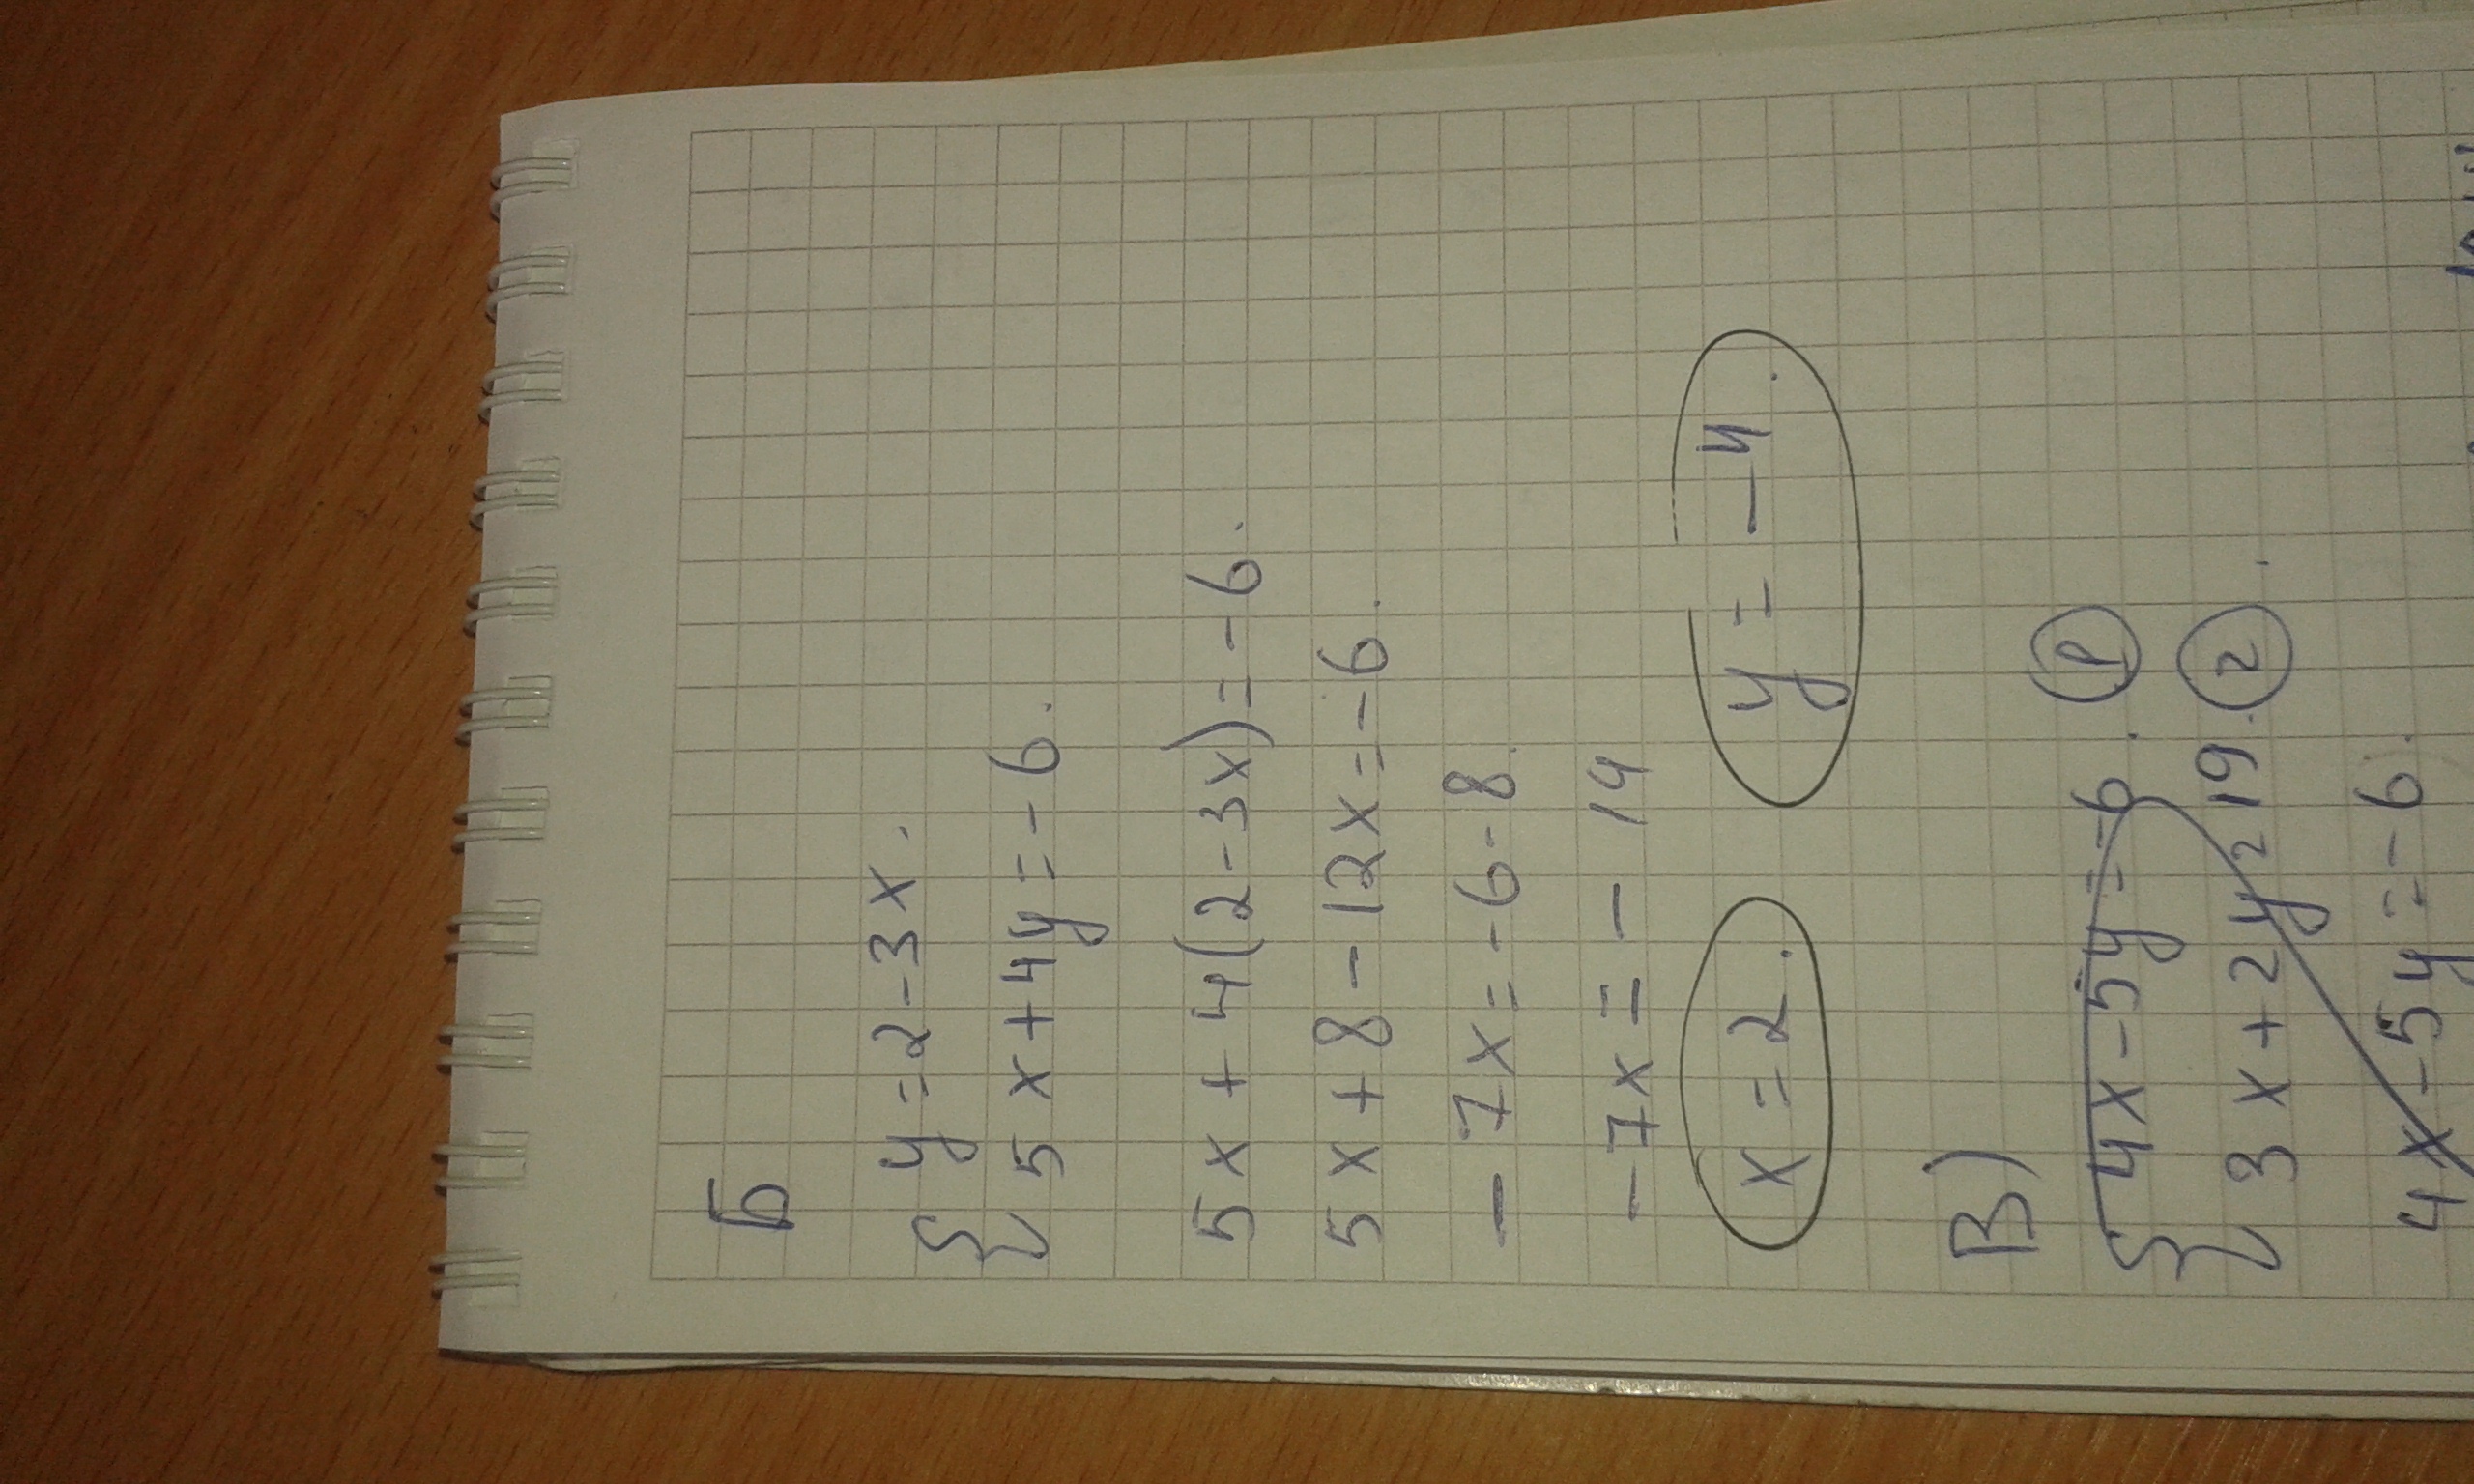 Б
{ y = 2 - 3x.
{ 5x + 4y = - 6.
5x + 4(2 - 3x) = - 6.
5x + 8 - 12x = - 6.
- 7x = - 6 - 8.
- 7x = - 14
x = 2. y = - 4.
В)
{ 4x - 5y = - 6. ①
{ 3x + 2y = 19. ②
4x - 5y = - 6.